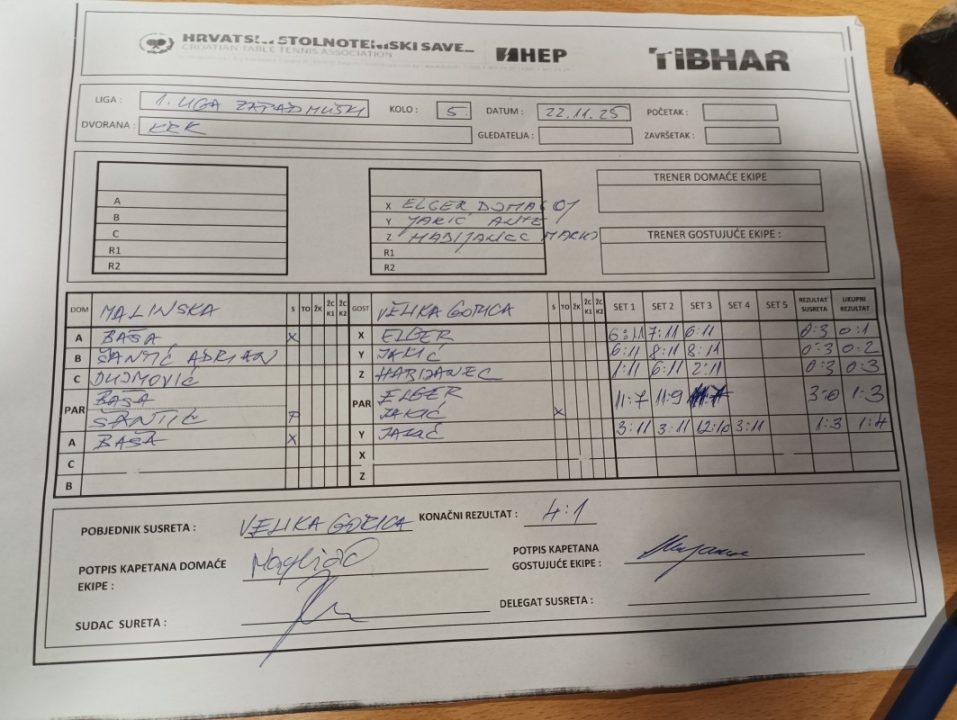 HRVATS STOLNOTENISKI SAVE
CROATIAN TABLE TENNIS ASSOCIATION
HEP
TIBHAR
LIGA : 1. LIGA ZAPAD MUŠKI KOLO : 5. DATUM : 22.11.25 POČETAK :
DVORANA : KRK GLEDATELJA : ZAVRŠETAK :
TRENER DOMAĆE EKIPE
A X ELGER DOMAGOJ
B Y JAKIĆ ANTE
C Z HABIJANEC MARKO
TRENER GOSTUJUĆE EKIPE :
R1 R1
R2 R2
DOM MALINSKA S TO ŽK ŽC K1 ŽC K2 GOST VELIKA GORICA S TO ŽK ŽC K1 ŽC K2 SET 1 SET 2 SET 3 SET 4 SET 5 REZULTAT SUSRETA UKUPNI REZULTAT
A BAŠA X X ELGER 6:11 7:11 6:11 0:3 0:1
B ŠANTIĆ ADRIAN Y JAKIĆ 6:11 8:11 8:11 0:3 0:2
C DUJMOVIĆ Z HABIJANEC 1:11 6:11 2:11 0:3 0:3
PAR BAŠA PAR ELGER 11:7 11:9 11:7 3:0 1:3
ŠANTIĆ P JAKIĆ X
A BAŠA X Y JAKIĆ 3:11 3:11 12:10 3:11 1:3 1:4
C X
B Z
POBJEDNIK SUSRETA : VELIKA GORICA KONAČNI REZULTAT : 4:1
POTPIS KAPETANA DOMAĆE EKIPE : POTPIS KAPETANA GOSTUJUĆE EKIPE :
SUDAC SURETA : DELEGAT SUSRETA :